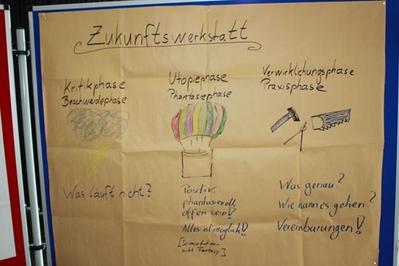 Zukunftswerkstatt
Kritikphase
Beschwerdephase
Was läuft nicht?
Utopiephase
Phantasiephase
Positiv
phantasievoll,
offen sein!
Alles ist möglich!
Verwirklichungsphase
Praxisphase
Was genau?
Wie kann es gehen?
Vereinbarungen!